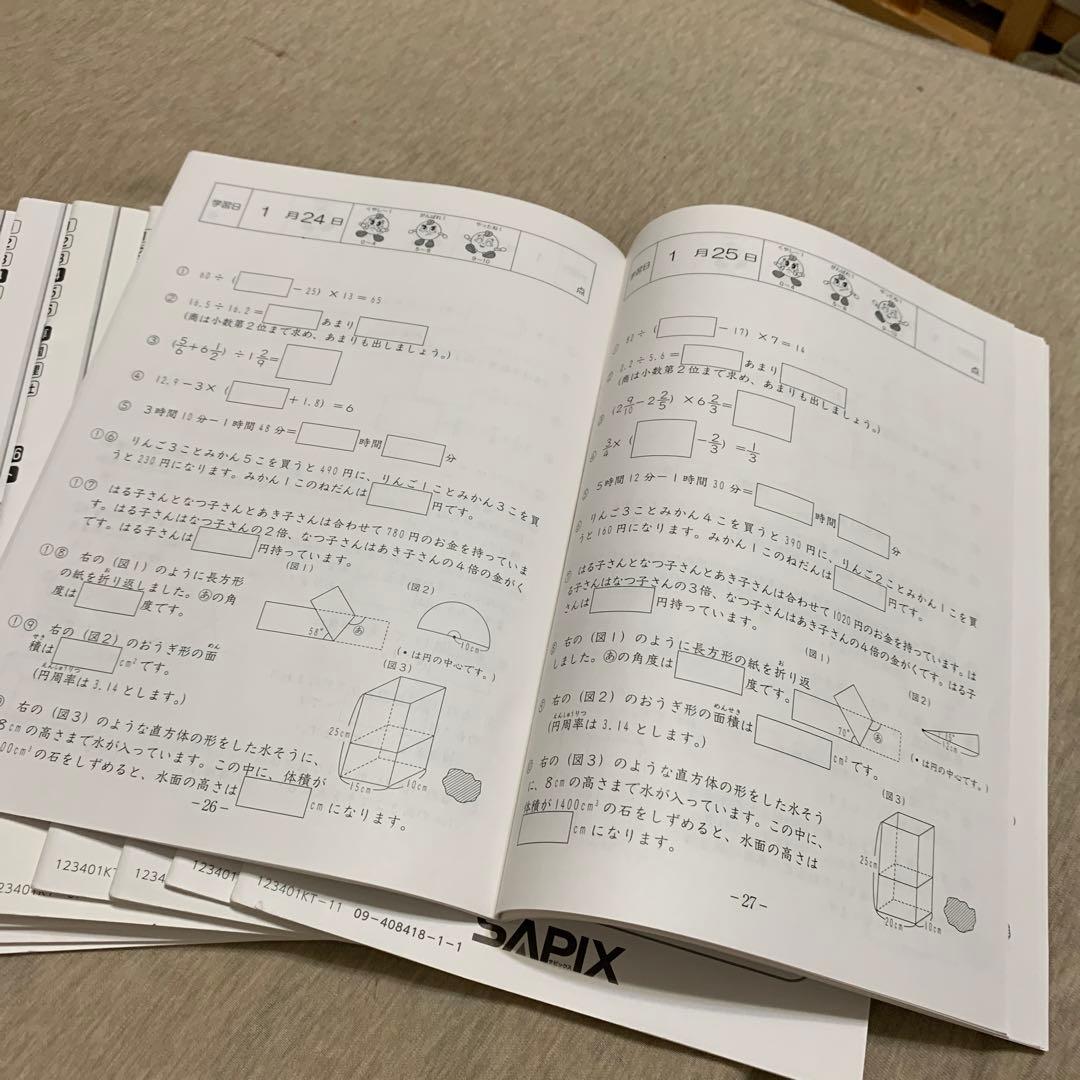 学習日 1 月 24 日 くやし〜! 0−4 がんばれ! 5−8 やったね! 9−10 点
① 60÷( −25)×13=65
② 16.5÷16.2= あまり
(商は小数第2位まで求め、あまりも出しましょう。)
③ (5/6+6 1/2)÷1 2/9=
④ 12.9−3×( +1.8)=6
⑤ 3時間10分−1時間48分= 時間 分
①⑥ りんご3ことみかん5こを買うと490円に、りんご1ことみかん3こを買
うと230円になります。みかん1このねだんは 円です。
①⑦ はる子さんとなつ子さんとあき子さんは合わせて780円のお金を持っていま
す。はる子さんはなつ子さんの2倍、なつ子さんはあき子さんの4倍の金がく
です。はる子さんは 円持っています。
①⑧ 右の(図1)のように長方形
の紙を折り返しました。あの角
度は 度です。
(図1)
58°
あ
(図2)
10cm
(•は円の中心です。)
①⑨ 右の(図2)のおうぎ形の面
積は cm²です。
(円周率は3.14とします。)
右の(図3)のような直方体の形をした水そうに、
8cmの高さまで水が入っています。この中に、体積が
00cm³の石をしずめると、水面の高さは cmになります。
(図3)
25cm
15cm
10cm
−26−
学習日 1 月 25 日 くやし〜! 0−4 がんばれ! 5−8 やったね! 点
÷( −17)×7=14
.2÷5.6= あまり
(商は小数第2位まで求め、あまりも出しましょう。)
③ (2 9/10−2 2/5)×6 2/3=
④ 3/4×( −2/3)=1/3
⑤ 5時間12分−1時間30分= 時間 分
⑥ りんご3ことみかん4こを買うと390円に、りんご2ことみかん1こを買
うと160円になります。みかん1このねだんは 円です。
⑦ はる子さんとなつ子さんとあき子さんは合わせて1020円のお金を持っています。は
る子さんはなつ子さんの3倍、なつ子さんはあき子さんの4倍の金がくです。はる子
さんは 円持っています。
⑧ 右の(図1)のように長方形の紙を折り返
しました。あの角度は 度です。
(図1)
70°
あ
(図2)
15°
12cm
(•は円の中心です。)
⑨ 右の(図2)のおうぎ形の面積は cm²です。
(円周率は3.14とします。)
右の(図3)のような直方体の形をした水そう
に、8cmの高さまで水が入っています。この中に、
体積が1400cm³の石をしずめると、水面の高さは
cmになります。
(図3)
25cm
20cm
10cm
−27−
123401KT
123401KT-11 09-408418-1-1
SAPIX
サピックス